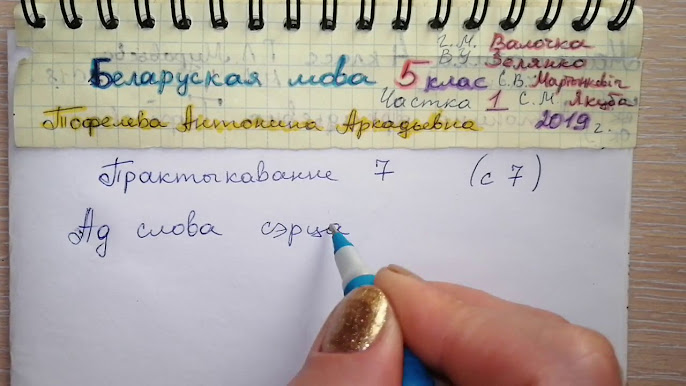 Г. М. Валочка
В. У. Зелянко
Беларуская мова 5 клас С. В. Мартынкевіч
Частка 1 С. М Якуба
Тофелева Антонина Аркадьевна 2019 г.
Практыкаванне 7 (с 7)
Ад слова сэрца